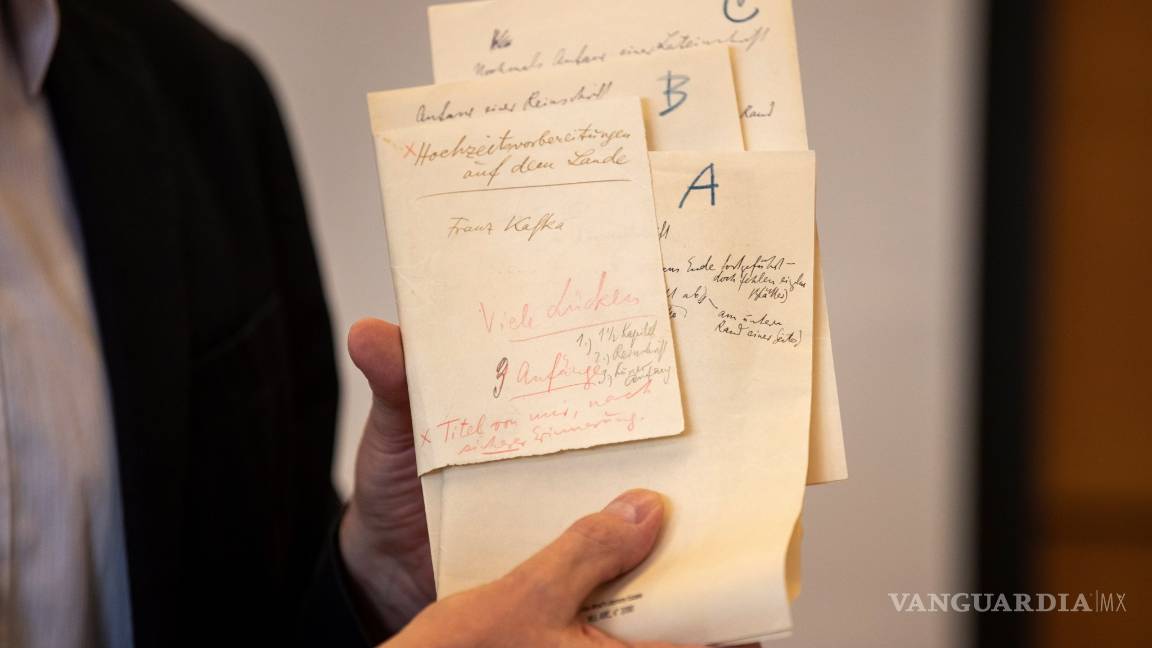 C
Nochmals Anfang einer Lateinschrift
Rand
Anfang einer Reinschrift
B
x Hochzeitsvorbereitungen
auf dem Lande
Franz Kafka
Viele Lücken
1.) 1 1/2 Kapitel
2.) Reinschrift
3 Anfänge
x Titel von mir, nach
sicherer Erinnerung.
A
Ende fortgeführt –
doch fehlen einzelne
Blätter)
am unteren
Rand einer Seite)
VANGUARDIA|MX